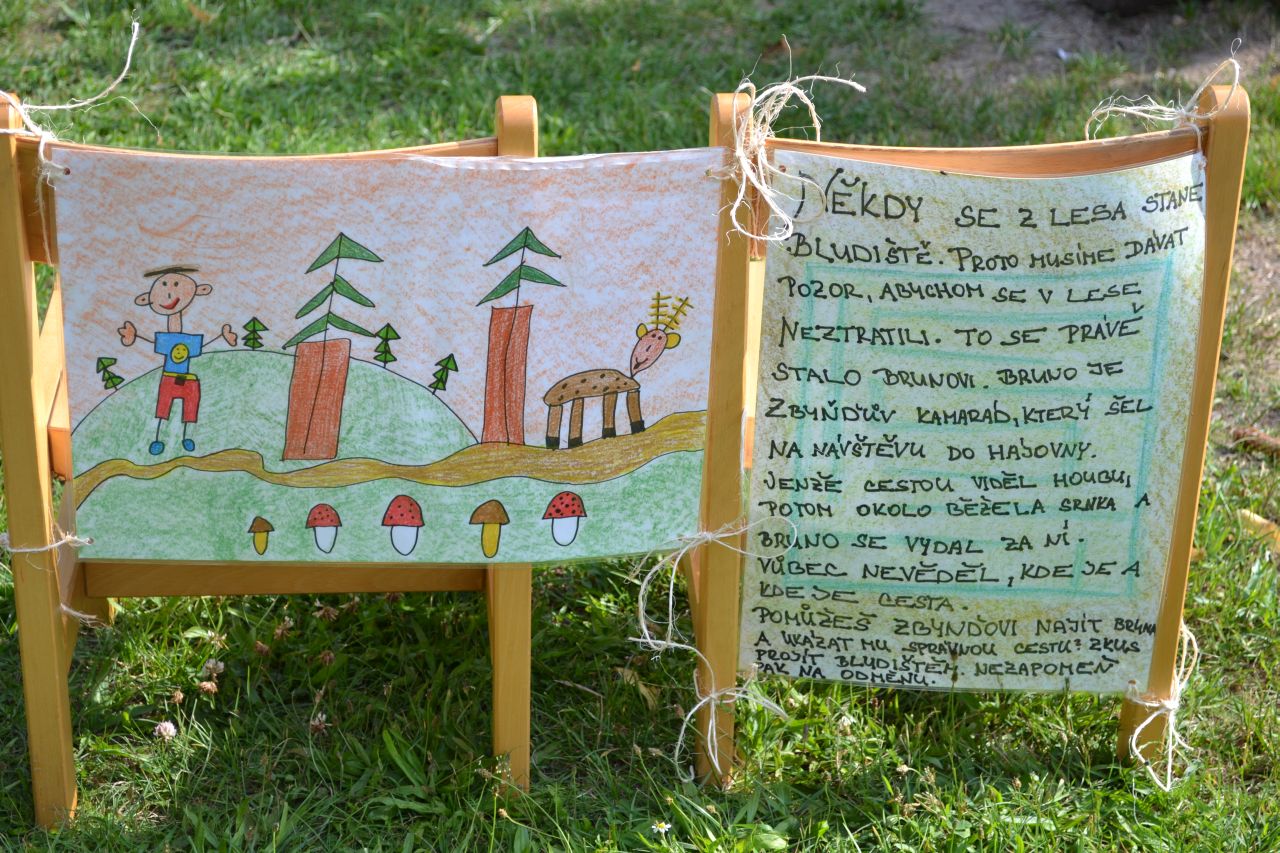 NĚKDY SE Z LESA STANE
BLUDIŠTĚ. PROTO MUSÍME DÁVAT
POZOR, ABYCHOM SE V LESE
NEZTRATILI. TO SE PRÁVĚ
STALO BRUNOVI. BRUNO JE
ZBYŇĎŮV KAMARÁD, KTERÝ ŠEL
NA NÁVŠTĚVU DO HÁJOVNY.
JENŽE CESTOU VIDĚL HOUBU,
POTOM OKOLO BĚŽELA SRNKA A
BRUNO SE VYDAL ZA NÍ.
VŮBEC NEVĚDĚL, KDE JE A
KDE JE CESTA.
POMŮŽEŠ ZBYŇĎOVI NAJÍT BRUNA
A UKÁZAT MU SPRÁVNOU CESTU? ZKUS
PROJÍT BLUDIŠTĚM. NEZAPOMEŇ
PAK NA ODMĚNU.